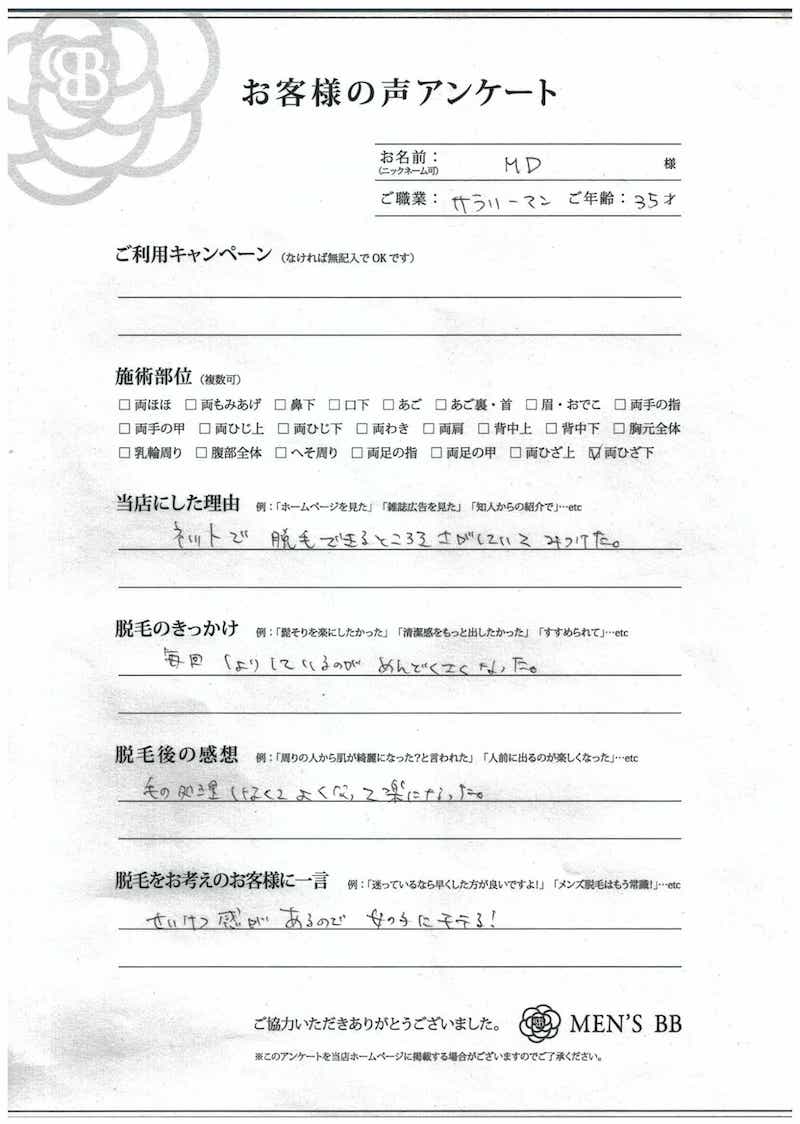 BB
お客様の声アンケート
お名前: MD 様
(ニックネーム可)
ご職業: サラリーマン ご年齢: 35才
ご利用キャンペーン (なければ無記入でOKです)
施術部位 (複数可)
□両ほほ □両もみあげ □鼻下 □口下 □あご □あご裏・首 □眉・おでこ □両手の指
□両手の甲 □両ひじ上 □両ひじ下 □両わき □両肩 □背中上 □背中下 □胸元全体
□乳輪周り □腹部全体 □へそ周り □両足の指 □両足の甲 □両ひざ上 ☑両ひざ下
当店にした理由 例:「ホームページを見た」「雑誌広告を見た」「知人からの紹介で」…etc
ネットで 脱毛できるところをさがしていて みつけた。
脱毛のきっかけ 例:「髭そりを楽にしたかった」「清潔感をもっと出したかった」「すすめられて」…etc
毎回 しょりしているのが めんどくさくなった。
脱毛後の感想 例:「周りの人から肌が綺麗になった?と言われた」「人前に出るのが楽しくなった」…etc
毛の処理しなくてよくなって楽になった。
脱毛をお考えのお客様に一言 例:「迷っているなら早くした方が良いですよ!」「メンズ脱毛はもう常識!」…etc
せいけつ感が あるので 女の子にモテる!
ご協力いただきありがとうございました。 MEN'S BB
※このアンケートを当店ホームページに掲載する場合がございますのでご了承ください。